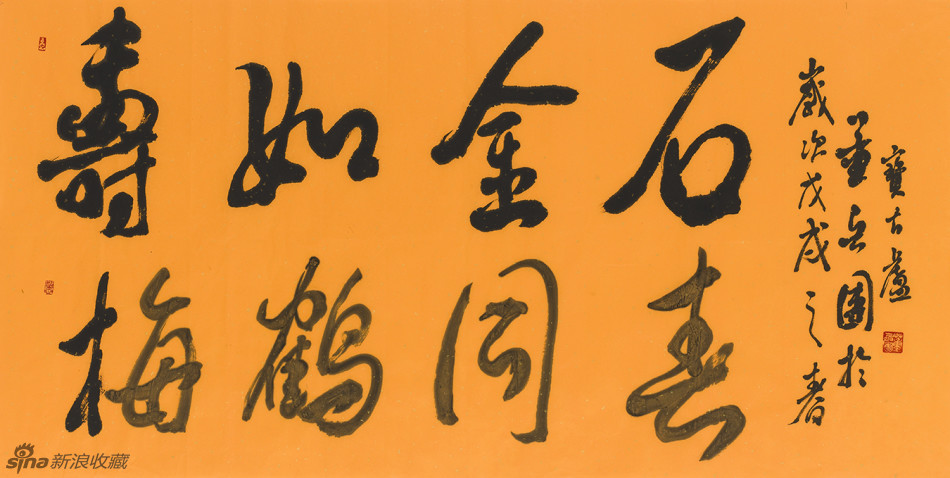 壽如金石
梅鶴同春
歲次戊戌之春
董國於
寶古廬
sina新浪收藏